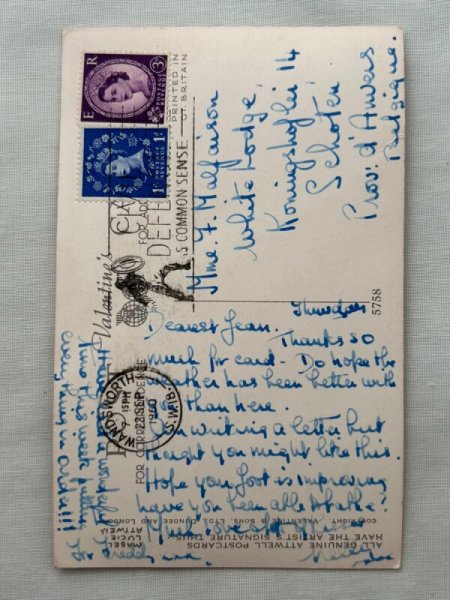 Thursday
Dearest Jean.
Thanks so
much for card - Do hope the
weather has been better with
you than here.
I'm writing a letter but
thought you might like this.
Hope your foot is improving
have you been able to bathe?
Much love to
for Freddy
Have had a
this week putting
everything in order!!!
Mme. F. Malfaison
White Lodge,
Koningshoflei 14
Schoten
Prov: d'Anvers
Belgique.
E R
3D
POSTAGE REVENUE
1D
POSTAGE REVENUE
PRINTED IN
GT. BRITAIN
DEF
IS COMMON SENSE
WANDSWORTH
S.W.18.
15 PM
22 SEP
1960
Valentine's
FOR CORRESPONDENCE
FOR ADD
5758
ALL GENUINE ATTWELL POSTCARDS
HAVE THE ARTIST'S SIGNATURE THUS
MABEL
LUCIE
ATTWELL
COPYRIGHT. VALENTINE & SONS, LTD., DUNDEE AND LONDON